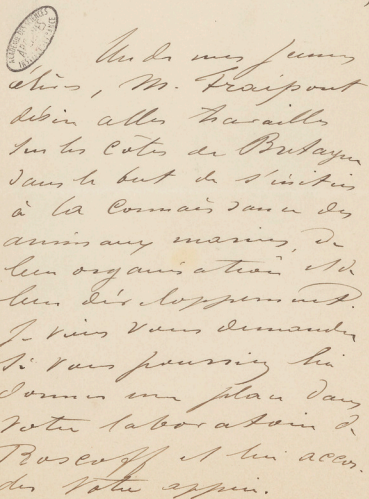 Un de mes jeunes
élèves, M. Fraipont
désire aller travailler
sur les côtes de Bretagne
dans le but de s'initier
à la connaissance des
animaux marins, de
leur organisation et de
leur développement.
Je viens vous demander
si vous pourriez lui
donner une place dans
votre laboratoire de
Roscoff et lui accor-
der votre appui.